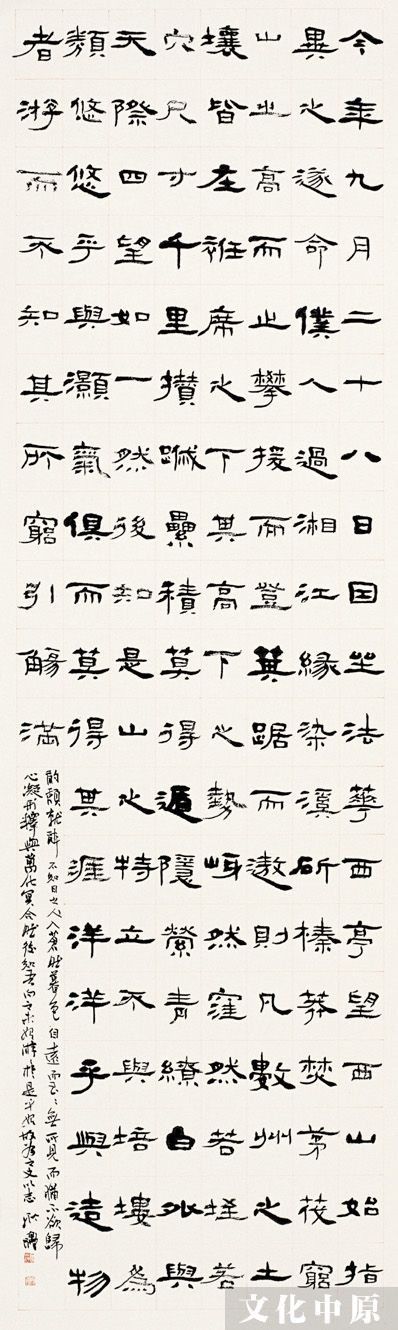 今年九月二十八日因坐法華西亭望西山始指
異之遂命僕人過湘江緣染溪斫榛莽焚茅茷窮
山之高而止攀援而登箕踞而遨則凡數州之土
壤皆在衽席之下其高下之勢岈然窪然若垤若
穴尺寸千里攢蹙纍積莫得遁隱縈青繚白外與
天際四望如一然後知是山之特立不與培塿為
類悠悠乎與灝氣俱而莫得其涯洋洋乎與造物
者游而不知其所窮引觴滿
酌頹就醉不知日之入入蒼然暮色自遠而至〻無所見而猶不欲歸
心凝形釋與萬化冥合然後知吾向之未始游於是乎始故為之文以志
文化中原